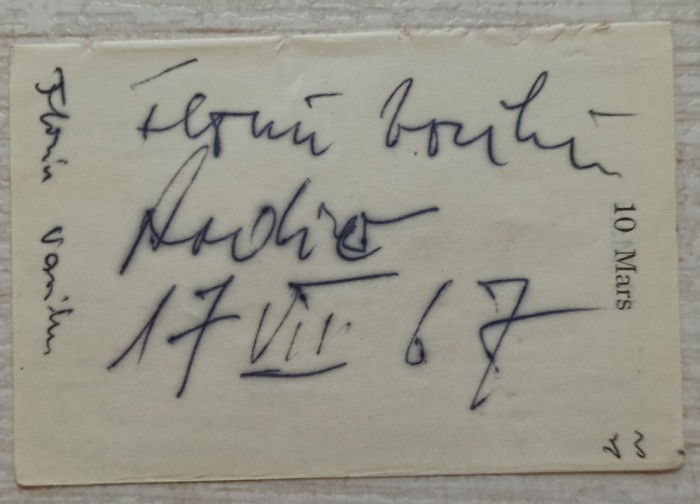 Florin Vasiliu
Radio
17 VII 67
Florin Vasiliu
10 Mars